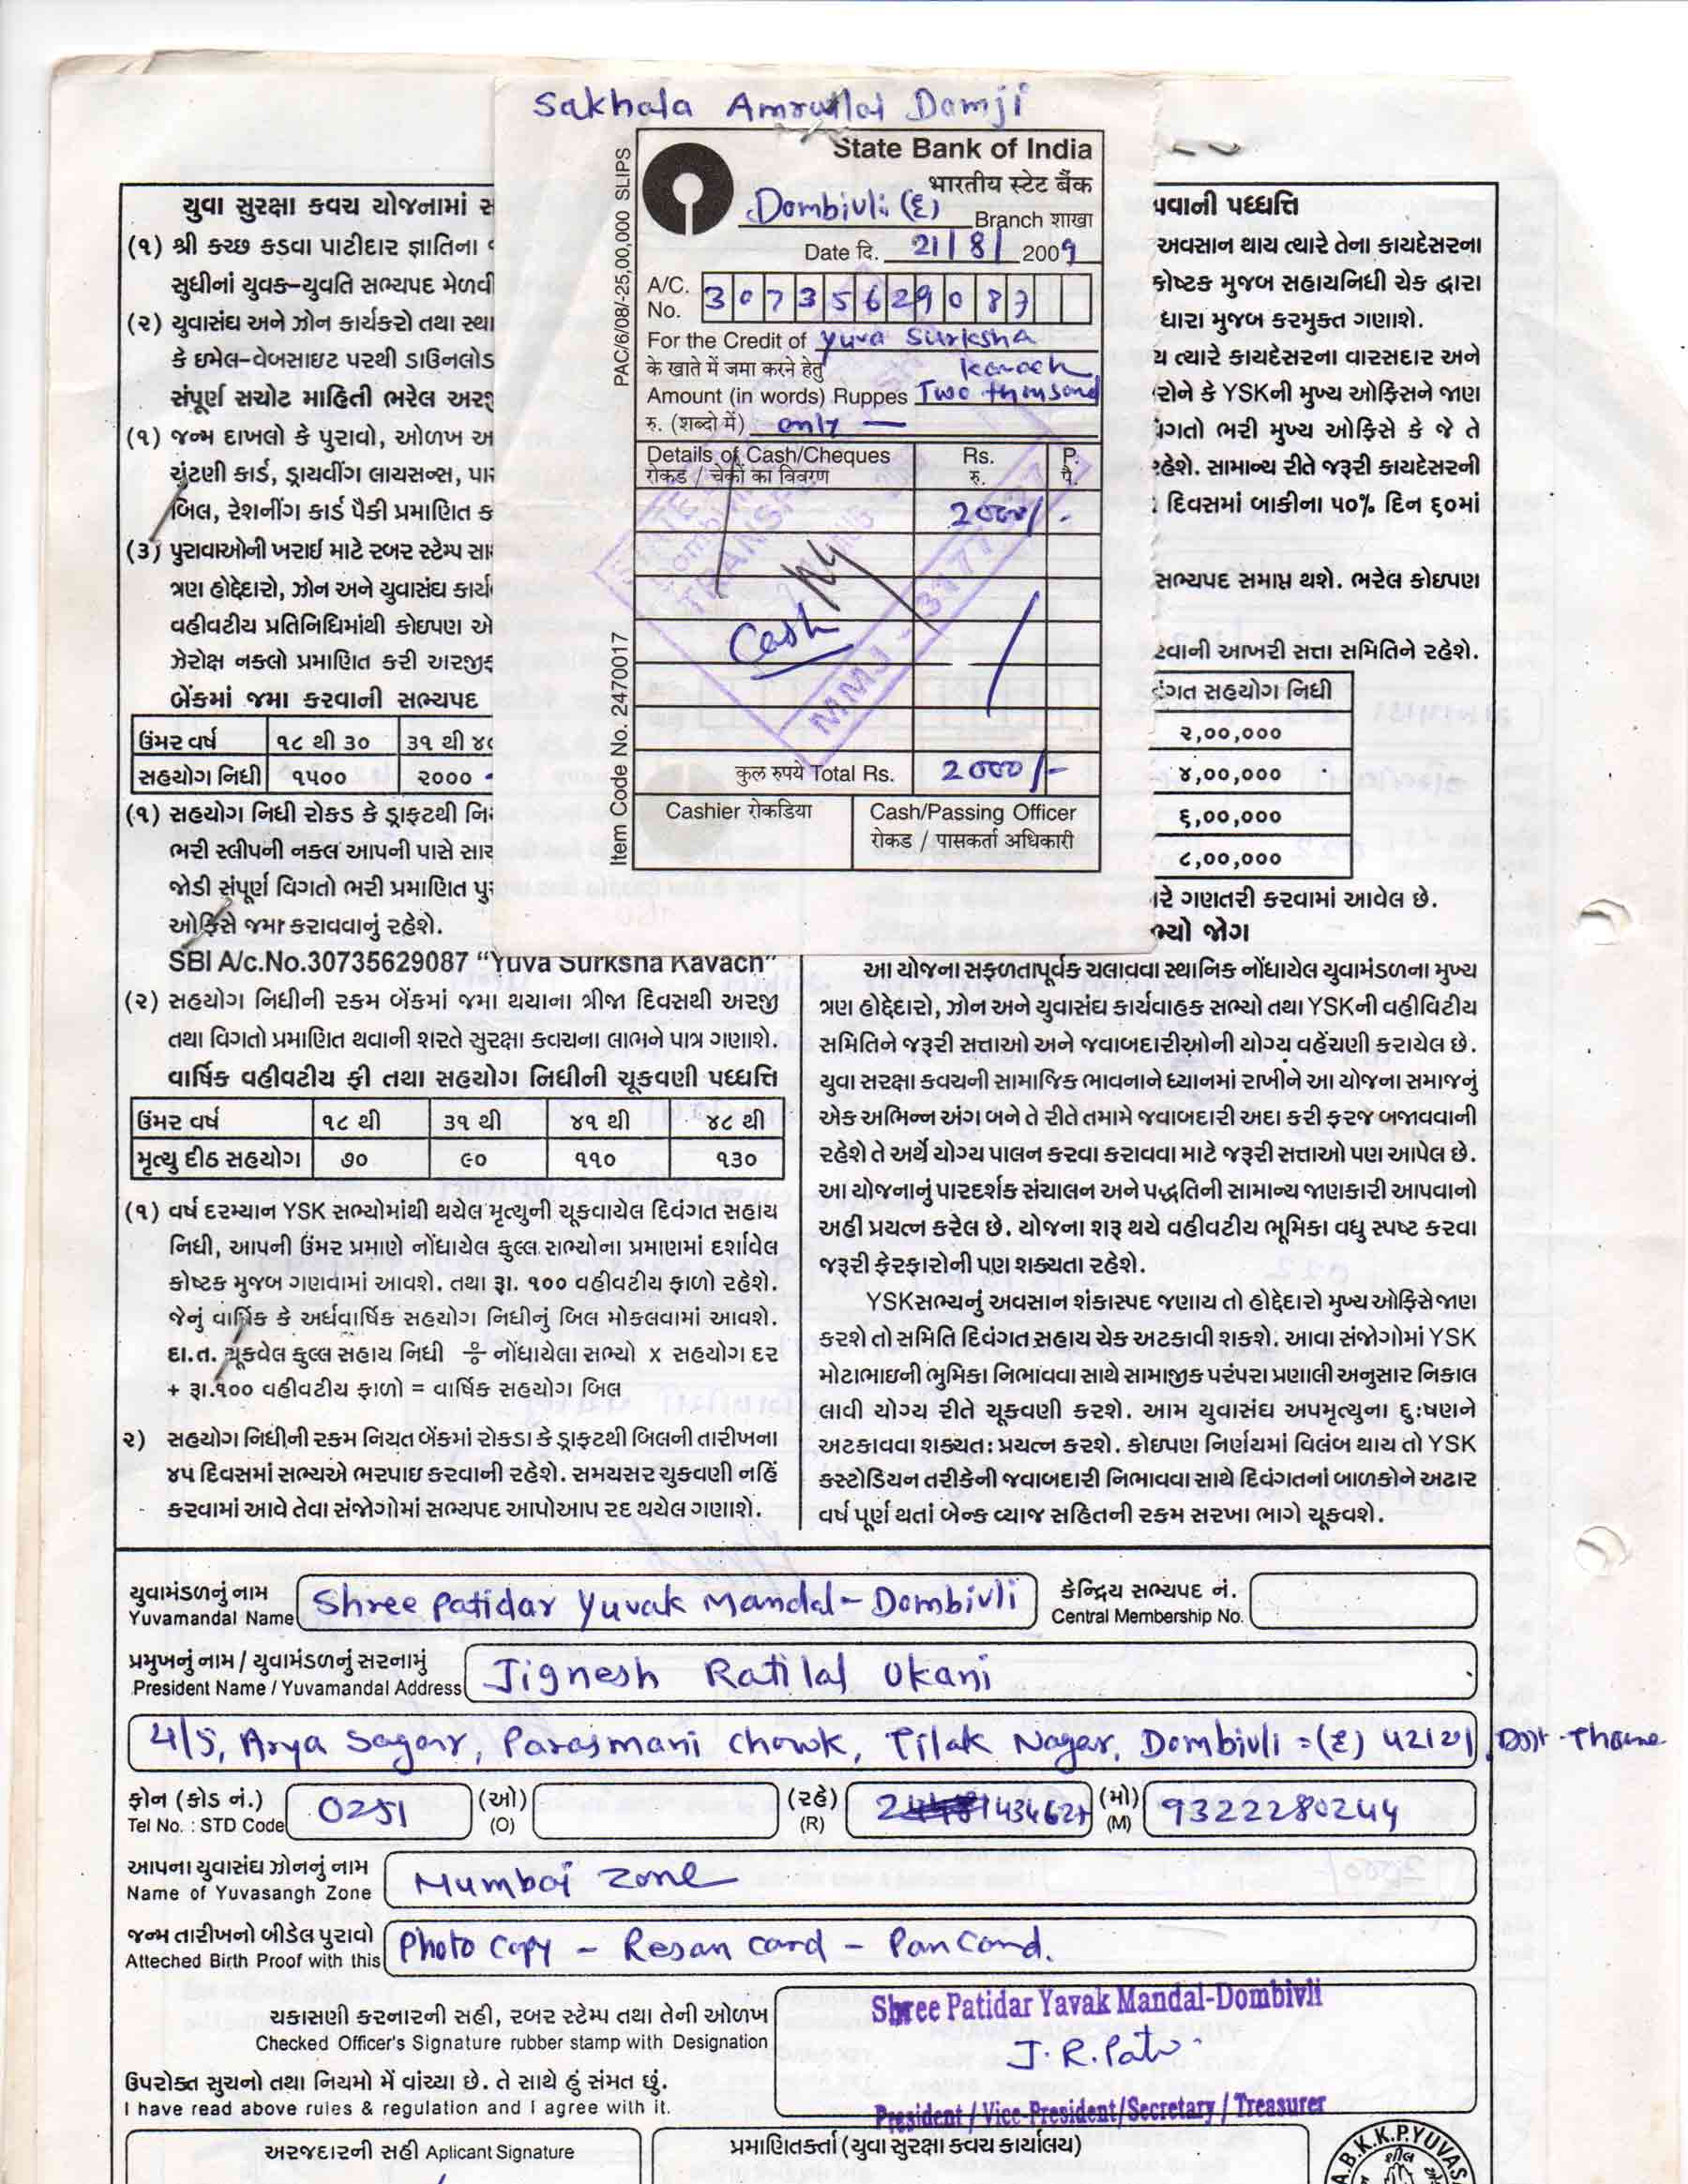 Sakhala Amrutlal Damji
PAC/6/08/-25,00,000 SLIPS
Item Code No. 2470017
State Bank of India
भारतीय स्टेट बैंक
Dombivli (ई) Branch शाखा
Date दि. 21/8/2009
A/C. No. 30735629087
For the Credit of Yuva Surksha
के खाते में जमा करने हेतु Kavach
Amount (in words) Ruppes Two thousand
रु. (शब्दो में) only —
Details of Cash/Cheques Rs. P.
रोकड / चेकों का विवरण रु. पै.
2000/-
Cash
MMJ - 3177
कुल रुपये Total Rs. 2000/-
Cashier रोकडिया Cash/Passing Officer
रोकड / पासकर्ता अधिकारी
યુવા સુરક્ષા કવચ યોજનામાં
(૧) શ્રી કચ્છ કડવા પાટીદાર જ્ઞાતિના
સુધીનાં યુવક-યુવતિ સભ્યપદ મેળવી
(૨) યુવાસંઘ અને ઝોન કાર્યકરો તથા
કે ઇમેલ-વેબસાઇટ પરથી ડાઉનલોડ
સંપૂર્ણ સચોટ માહિતી ભરેલ
(૧) જન્મ દાખલો કે પુરાવો, ઓળખ
ચૂંટણી કાર્ડ, ડ્રાયવીંગ લાયસન્સ,
બિલ, રેશનીંગ કાર્ડ પૈકી પ્રમાણિત
(૩) પુરાવાઓની ખરાઇ માટે રબર સ્ટેમ્પ
ત્રણ હોદ્દેદારો, ઝોન અને યુવાસંઘ
વહીવટીય પ્રતિનિધિમાંથી કોઇપણ
ઝેરોક્ષ નકલો પ્રમાણિત કરી
બેંકમાં જમા કરવાની સભ્યપદ
ઉંમર વર્ષ ૧૮ થી ૩૦ ૩૧ થી ૪૦
સહયોગ નિધી ૧૫૦૦ ૨૦૦૦
(૧) સહયોગ નિધી રોકડ કે ડ્રાફ્ટથી
ભરી સ્લીપની નકલ આપની પાસે
જોડી સંપૂર્ણ વિગતો ભરી પ્રમાણિત
ઓફિસે જમા કરાવવાનું રહેશે.
SBI A/c.No.30735629087 “Yuva Surksha Kavach”
(૨) સહયોગ નિધીની રકમ બેંકમાં જમા થયાના ત્રીજા દિવસથી અરજી
તથા વિગતો પ્રમાણિત થવાની શરતે સુરક્ષા કવચના લાભને પાત્ર ગણાશે.
વાર્ષિક વહીવટીય ફી તથા સહયોગ નિધીની ચૂકવણી પધ્ધતિ
ઉંમર વર્ષ ૧૮ થી ૩૧ થી ૪૧ થી ૪૮ થી
મૃત્યુ દીઠ સહયોગ ૭૦ ૯૦ ૧૧૦ ૧૩૦
(૧) વર્ષ દરમ્યાન YSK સભ્યોમાંથી થયેલ મૃત્યુની ચૂકવાયેલ દિવંગત સહાય
નિધી, આપની ઉંમર પ્રમાણે નોંધાયેલ કુલ્લ સભ્યોના પ્રમાણમાં દર્શાવેલ
કોષ્ટક મુજબ ગણવામાં આવશે. તથા રૂા. ૧૦૦ વહીવટીય ફાળો રહેશે.
જેનું વાર્ષિક કે અર્ધવાર્ષિક સહયોગ નિધીનું બિલ મોકલવામાં આવશે.
દા.ત. ચૂકવેલ કુલ્લ સહાય નિધી ÷ નોંધાયેલા સભ્યો x સહયોગ દર
+ રૂા.૧૦૦ વહીવટીય ફાળો = વાર્ષિક સહયોગ બિલ
૨) સહયોગ નિધીની રકમ નિયત બેંકમાં રોકડા કે ડ્રાફ્ટથી બિલની તારીખના
૪૫ દિવસમાં સભ્યએ ભરપાઇ કરવાની રહેશે. સમયસર ચુકવણી નહિં
કરવામાં આવે તેવા સંજોગોમાં સભ્યપદ આપોઆપ રદ થયેલ ગણાશે.
પધ્ધતિ
અવસાન થાય ત્યારે તેના કાયદેસરના
કોષ્ટક મુજબ સહાયનિધી ચેક દ્વારા
ધારા મુજબ કરમુક્ત ગણાશે.
ત્યારે કાયદેસરના વારસદાર અને
કે YSKની મુખ્ય ઓફિસને જાણ
ભરી મુખ્ય ઓફિસે કે જે તે
રહેશે. સામાન્ય રીતે જરૂરી કાયદેસરની
દિવસમાં બાકીના ૫૦% દિન ૬૦માં
સભ્યપદ સમાપ્ત થશે. ભરેલ કોઇપણ
આખરી સત્તા સમિતિને રહેશે.
સહયોગ નિધી
૨,૦૦,૦૦૦
૪,૦૦,૦૦૦
૬,૦૦,૦૦૦
૮,૦૦,૦૦૦
ગણતરી કરવામાં આવેલ છે.
જોગ
આ યોજના સફળતાપૂર્વક ચલાવવા સ્થાનિક નોંધાયેલ યુવામંડળના મુખ્ય
ત્રણ હોદ્દેદારો, ઝોન અને યુવાસંઘ કાર્યવાહક સભ્યો તથા YSKની વહીવિટીય
સમિતિને જરૂરી સત્તાઓ અને જવાબદારીઓની યોગ્ય વહેંચણી કરાયેલ છે.
યુવા સરક્ષા કવચની સામાજિક ભાવનાને ધ્યાનમાં રાખીને આ યોજના સમાજનું
એક અભિન્ન અંગ બને તે રીતે તમામે જવાબદારી અદા કરી ફરજ બજાવવાની
રહેશે તે અર્થે યોગ્ય પાલન કરવા કરાવવા માટે જરૂરી સત્તાઓ પણ આપેલ છે.
આ યોજનાનું પારદર્શક સંચાલન અને પદ્ધતિની સામાન્ય જાણકારી આપવાનો
અહીં પ્રયત્ન કરેલ છે. યોજના શરૂ થયે વહીવટીય ભૂમિકા વધુ સ્પષ્ટ કરવા
જરૂરી ફેરફારોની પણ શક્યતા રહેશે.
YSKસભ્યનું અવસાન શંકાસ્પદ જણાય તો હોદ્દેદારો મુખ્ય ઓફિસે જાણ
કરશે તો સમિતિ દિવંગત સહાય ચેક અટકાવી શકશે. આવા સંજોગોમાં YSK
મોટાભાઇની ભુમિકા નિભાવવા સાથે સામાજીક પરંપરા પ્રણાલી અનુસાર નિકાલ
લાવી યોગ્ય રીતે ચૂકવણી કરશે. આમ યુવાસંઘ અપમૃત્યુના દુઃષણને
અટકાવવા શક્યતઃ પ્રયત્ન કરશે. કોઇપણ નિર્ણયમાં વિલંબ થાય તો YSK
કસ્ટોડિયન તરીકેની જવાબદારી નિભાવવા સાથે દિવંગતનાં બાળકોને અઢાર
વર્ષ પૂર્ણ થતાં બેન્ક વ્યાજ સહિતની રકમ સરખા ભાગે ચૂકવશે.
યુવામંડળનું નામ કેન્દ્રિય સભ્યપદ નં.
Yuvamandal Name Shree Patidar Yuvak Mandal - Dombivli Central Membership No.
પ્રમુખનું નામ / યુવામંડળનું સરનામું
President Name / Yuvamandal Address Jignesh Ratilal Ukani
4/5, Arya Sagar, Parasmani chowk, Tilak Nagar, Dombivli =(ई) 421201 Dist - Thane
ફોન (કોડ નં.) (ઓ) (રહે) (મો)
Tel No. : STD Code 0251 (O) (R) (M) 9322280244
આપના યુવાસંઘ ઝોનનું નામ
Name of Yuvasangh Zone Mumbai Zone
જન્મ તારીખનો બીડેલ પુરાવો
Atteched Birth Proof with this Photo Copy - Resan Card - Pan Card.
ચકાસણી કરનારની સહી, રબર સ્ટેમ્પ તથા તેની ઓળખ
Checked Officer's Signature rubber stamp with Designation
Shree Patidar Yavak Mandal-Dombivli
J. R. Patel
President / Vice-President/Secretary / Treasurer
ઉપરોક્ત સુચનો તથા નિયમો મેં વાંચ્યા છે. તે સાથે હું સંમત છું.
I have read above rules & regulation and I agree with it.
અરજદારની સહી Aplicant Signature
પ્રમાણિતકર્તા (યુવા સુરક્ષા કવચ કાર્યાલય)
A.B.K.K.P.YUVAS